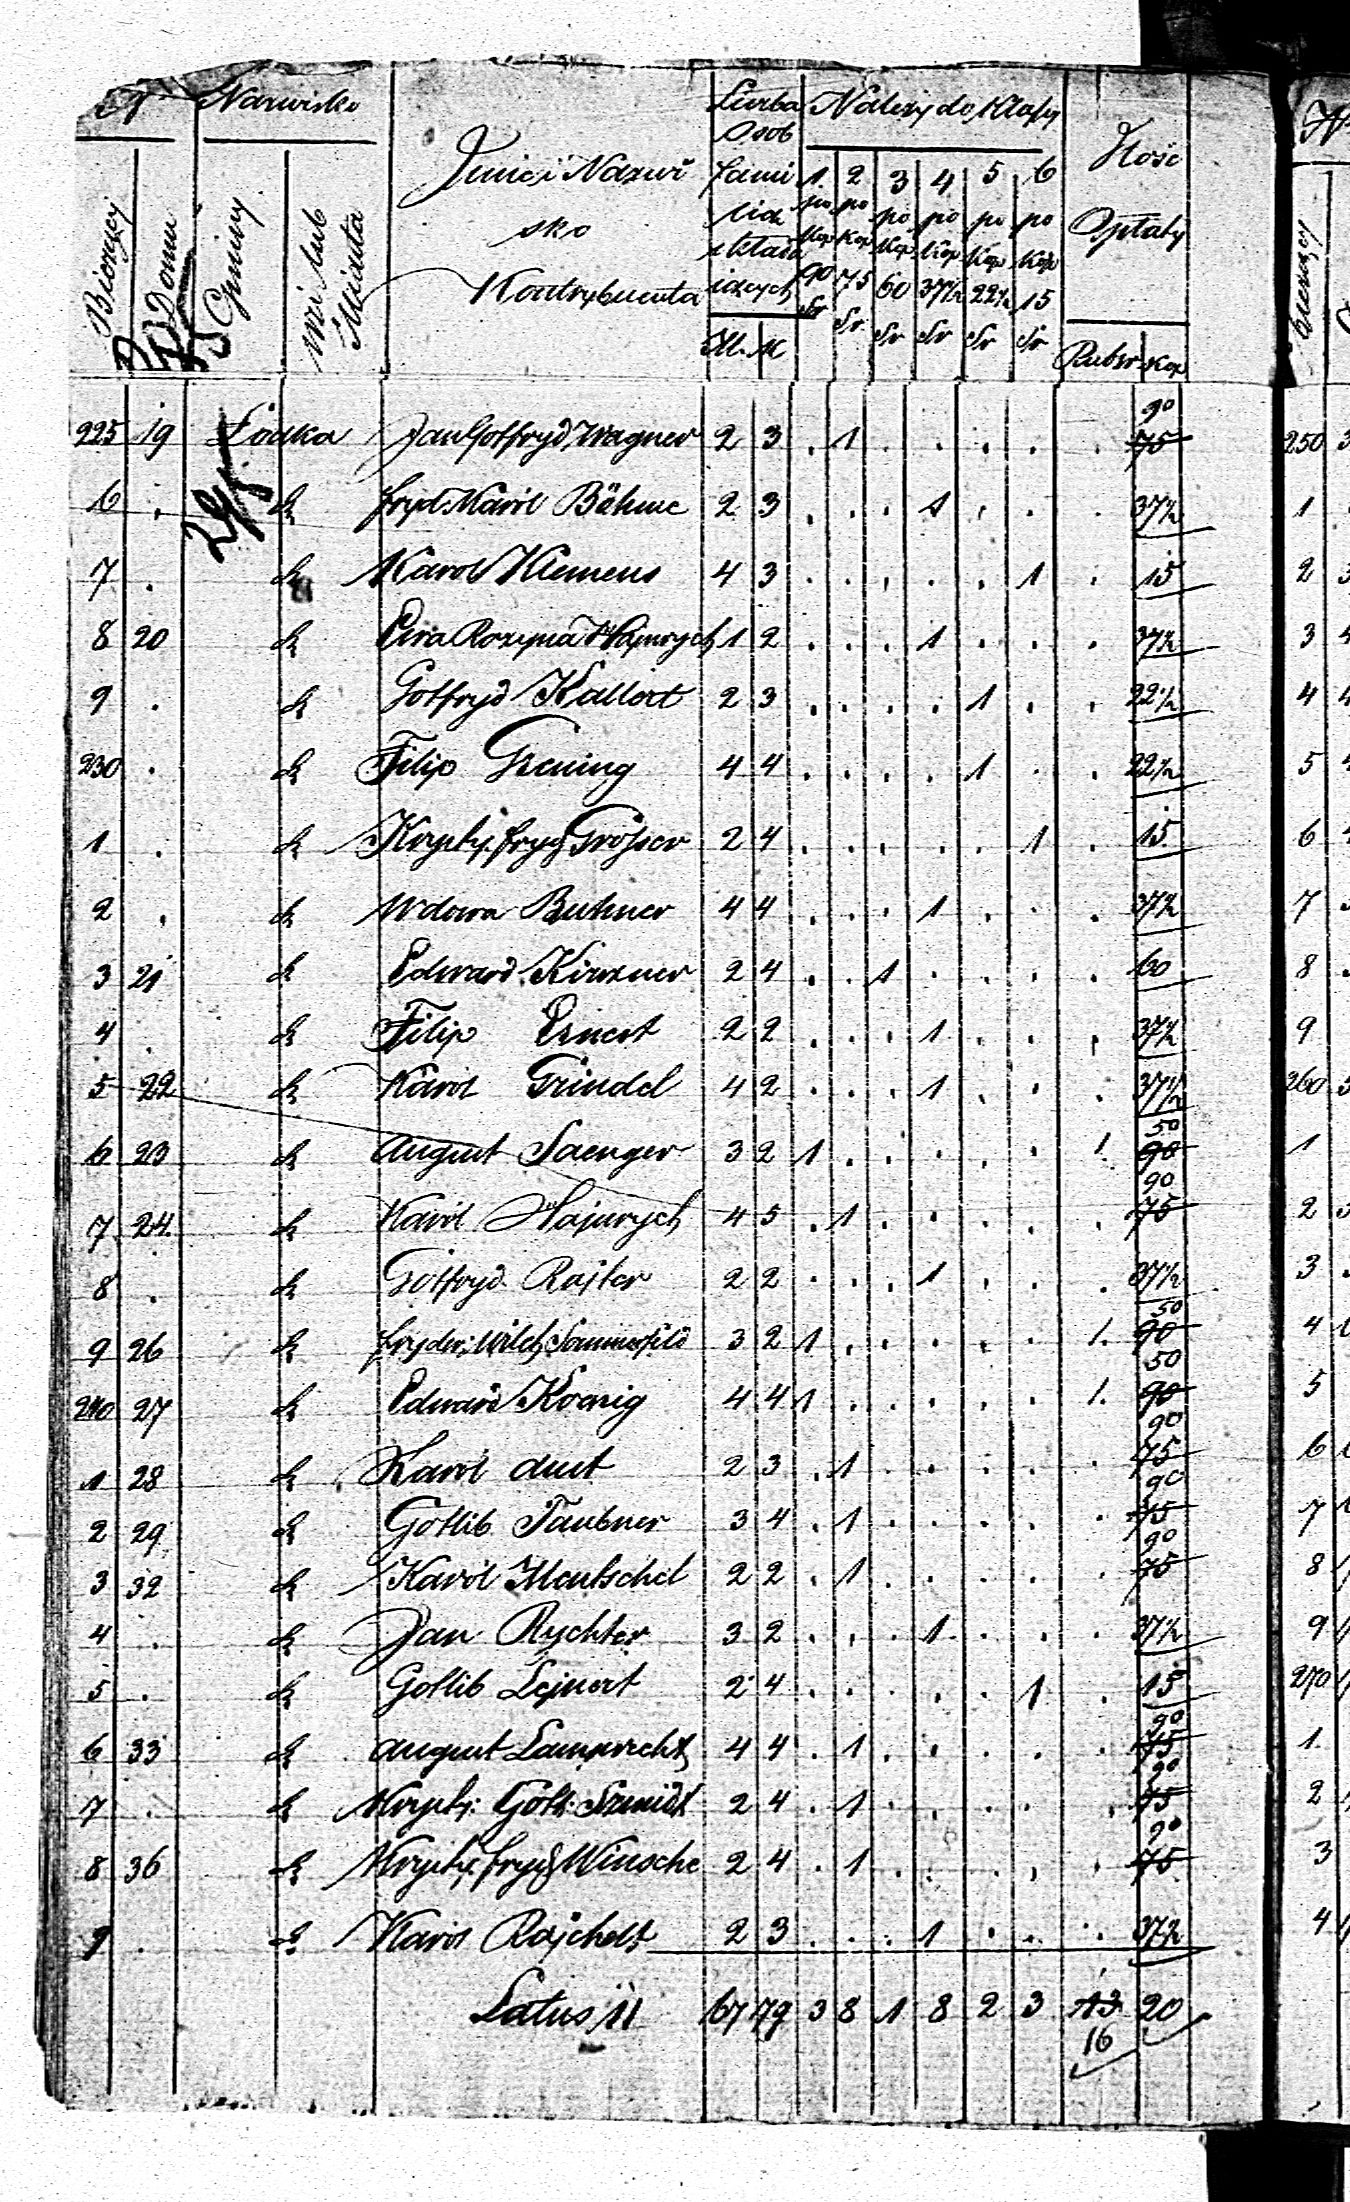 N Nazwisko Liczba Należy do Klassy
Osob
Imie i Nazwi fami 1. 2 3 4 5 6 Ilość
Bieżący Domu Gminy wsi lub Miasta
sko lią po po po po po po Opłaty
składa Kop Kop Kop Kop Kop Kop
Kontrybuenta iących 90 75 60 37½ 22½ 15
Sr Sr Sr Sr Sr Sr
M. K Rubsr Kop
90
225 19 Łodka Jan Gotfryd Wagner 2 3 . 1 . . . . . 75
6 . dt Fryd. Karol Böhme 2 3 . . . 1 . . . 37½
7 . dt Karol Klemens 4 3 . . . . . 1 . 15
8 20 dt Ewa Rozyna Hajnrych 1 2 . . . 1 . . . 37½
9 . dt Gotfryd Kallert 2 3 . . . . 1 . . 22½
230 . dt Filip Grening 4 4 . . . . 1 . . 22½
1 . dt Kryszt. Fryd Grösser 2 4 . . . . . 1 . 15
2 . dt Wdowa Buhner 4 4 . . . 1 . . . 37½
3 21 dt Edward Kirszner 2 4 . . 1 . . . . 60
4 . dt Filip Ernert 2 2 . . . 1 . . . 37½
5 22 dt Karol Grindel 4 2 . . . 1 . . . 37½
50
6 23 dt August Saenger 3 2 1 . . . . . 1. 90
90
7 24. dt Karol Hajnrych 4 5 . 1 . . . . . 75
8 . dt Gotfryd Rajter 2 2 . . . 1 . . . 37½
50
9 26 dt Fryder: Wilch Sommerfeld 3 2 1 . . . . . 1. 90
50
240 27 dt Edward Koenig 4 4 1 . . . . . 1. 90
90
1 28 dt Karol Aust 2 3 . 1 . . . . . 75
90
2 29 dt Gotlib Taubner 3 4 . 1 . . . . . 75
90
3 32 dt Karol Mentschel 2 2 . 1 . . . . . 75
4 . dt Jan Rychter 3 2 . . . 1 . . . 37½
5 . dt Gotlib Lejnert 2 4 . . . . . 1 . 15
90
6 33 dt August Lamprecht 4 4 . 1 . . . . . 75
90
7 . dt Kryszt: Gotl: Szmidt 2 4 . 1 . . . . . 75
90
8 36 dt Kryszt: Fryd Winsche 2 4 . 1 . . . . . 75
9 . dt Karol Rajchelt 2 3 . . . 1 . . . 37½
Latus 11 67 79 3 8 1 8 2 3 13 20
16
250
1
2
3
4
5
6
7
8
9
260
1
2
3
4
5
6
7
8
9
270
1.
2
3
4